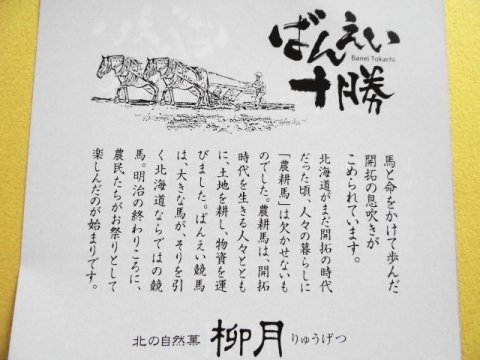 ばんえい
Banei Tokachi
十勝
馬と命をかけて歩んだ
開拓の息吹きが
こめられています。
北海道がまだ開拓の時代
だった頃、人々の暮らしに
「農耕馬」は欠かせないも
のでした。農耕馬は、開拓
時代を生きる人々ととも
に、土地を耕し、物資を運
びました。ばんえい競馬
は、大きな馬が、そりを引
く北海道ならではの競
馬。明治の終わりころに、
農民たちがお祭りとして
楽しんだのが始まりです。
北の自然菓 柳月 りゅうげつ